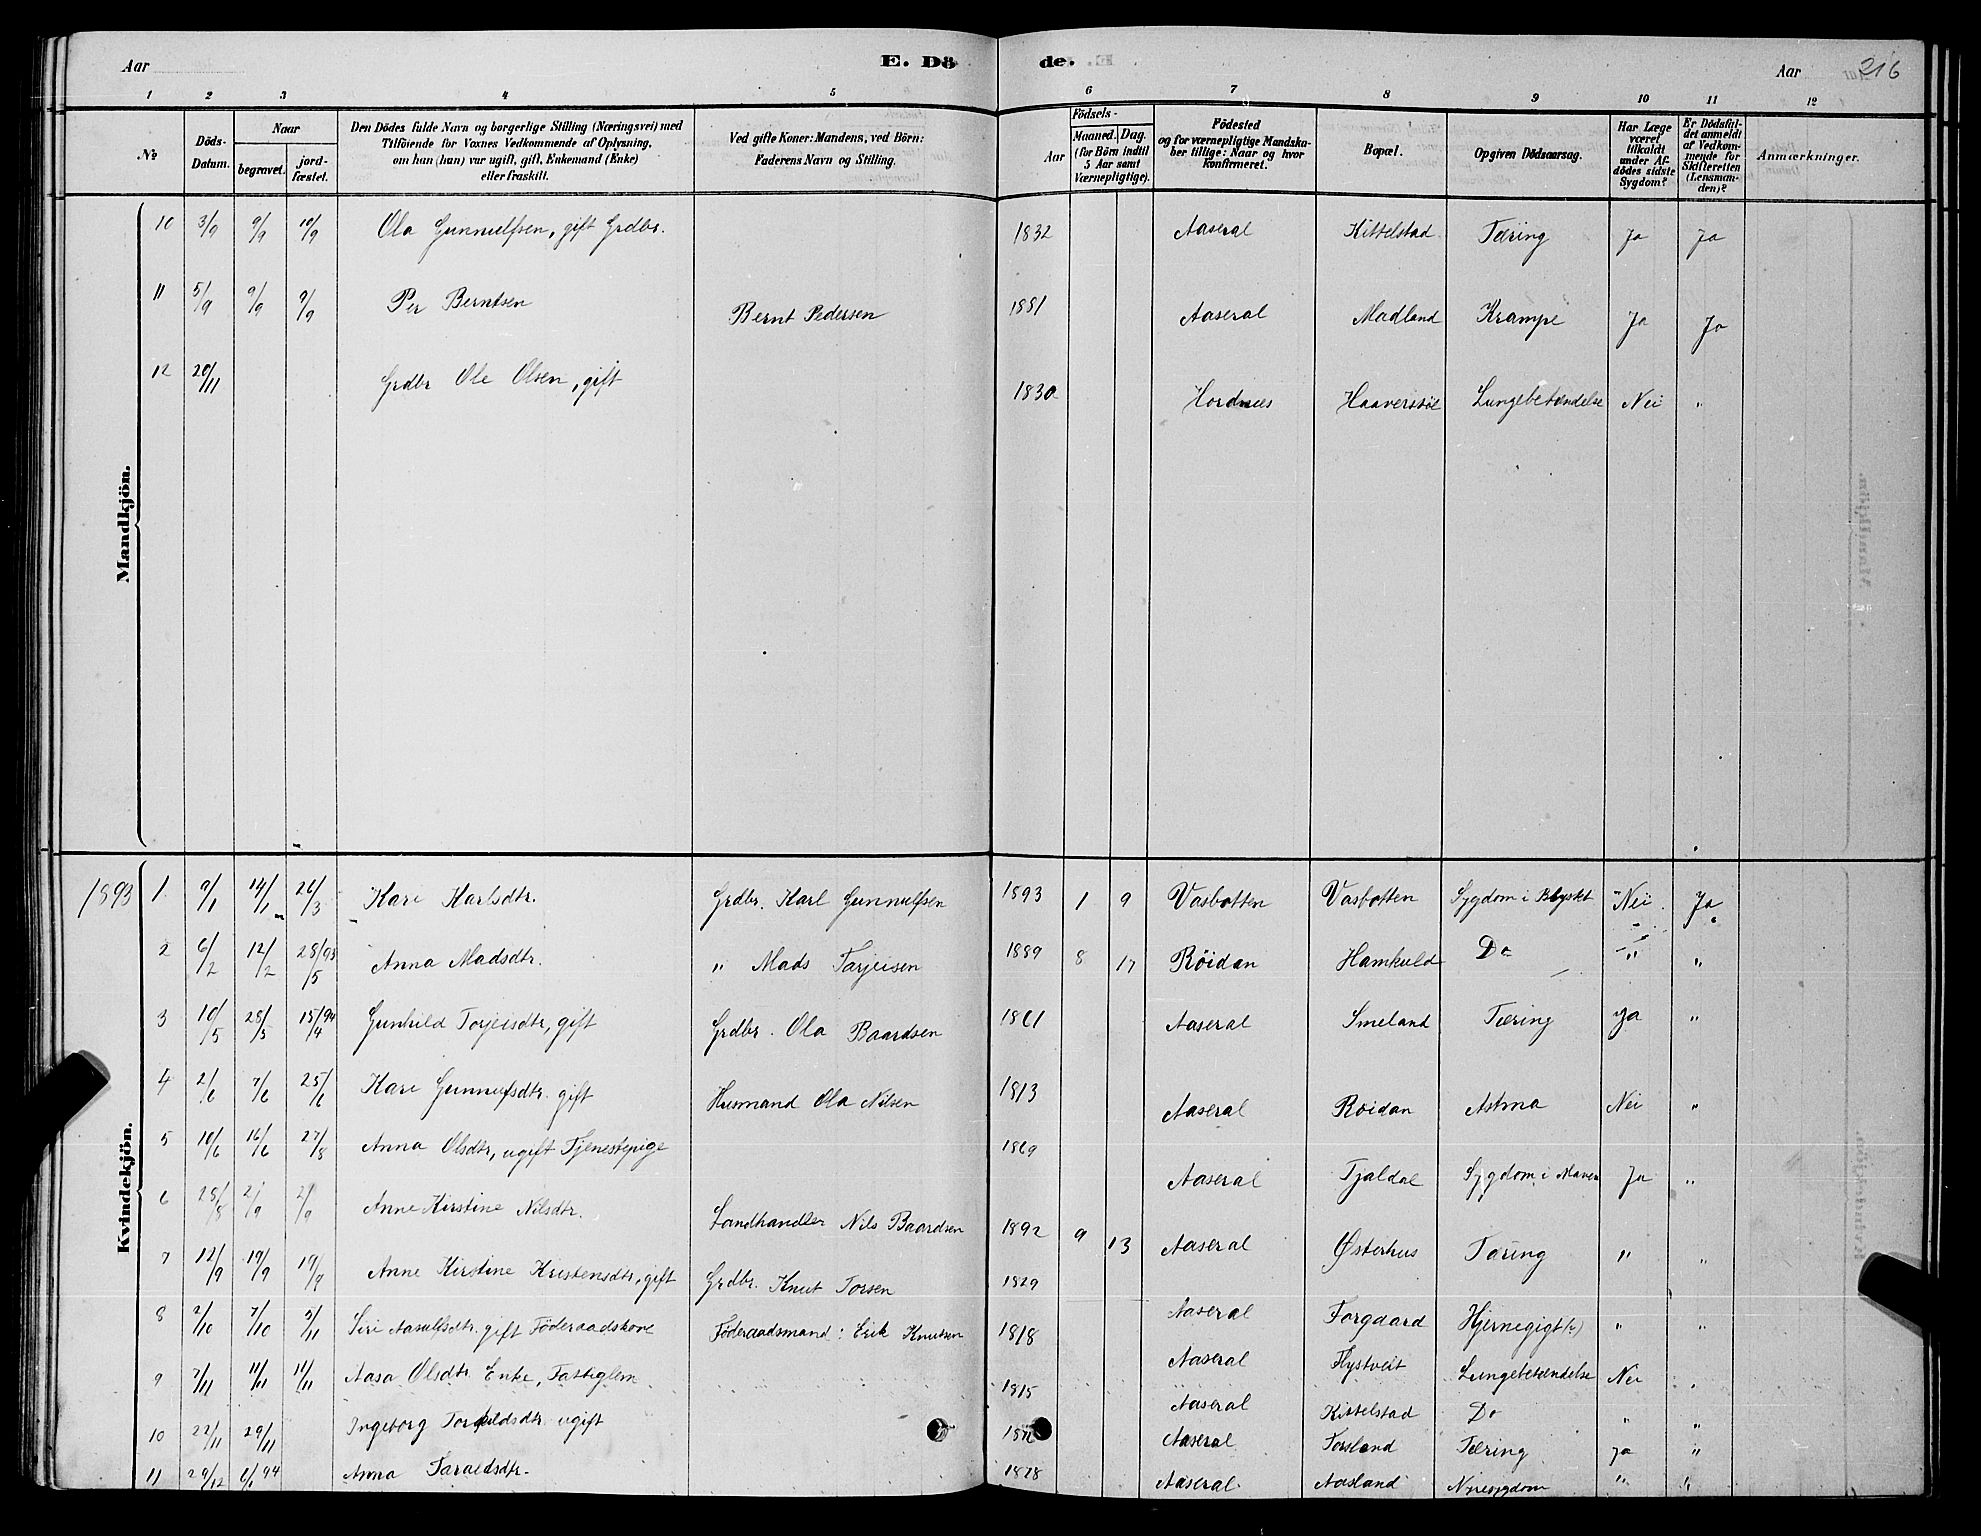 Aar E. Dö de. Aar 216
1 2 3 4 5 6 7 8 9 10 11 12
No Döds-Datum. Naar begravet. jordfæstet. Den Dödes fulde Navn og borgerlige Stilling (Næringsvei) med Tilföiende for Voxnes Vedkommende af Oplysning, om han (hun) var ugift, gift, Enkemand (Enke) eller fraskilt. Ved gifte Koner: Mandens, ved Börn: Faderens Navn og Stilling. Födsels- Aar Maaned. Dag. (for Börn indtil 5 Aar samt Værnepligtige). Födested og for værnepligtige Mandskaber tillige: Naar og hvor konfirmeret. Bopæl. Opgiven Dödsaarsag. Har Læge været tilkaldt under Afdödes sidste Sygdom? Er Dödsfaldet anmeldt af Vedkommende for Skifteretten (Lensmanden)? Anmærkninger.
Mandkjön.
10 3/9 9/9 10/9 Ola Gunnulfsen, gift Grdbr. 1832 Aaseral Kittelstad Tæring Ja Ja
11 5/9 9/9 9/9 Per Berntsen Bernt Pedersen 1881 Aaseral Madland Krampe Ja Ja
12 20/11 Grdbr Ole Olsen, gift 1830 Hordnes Haaverstöl Lungebetændelse Nei "
Kvindekjön.
1893 1. 9/1 14/1 26/3 Kari Karlsdtr. Grdbr. Karl Gunnulfsen 1893 1 9 Vasbotten Vasbotten Sygdom i Brystet Nei Ja
2 6/2 12/2 28/93/5 Anna Madsdtr. " Mads Tarjeisen 1889 8 17 Röidan Hamkold Do " "
3 10/5 28/5 15/94/4 Gunhild Torjeisdtr, gift Grdbr. Ola Baardsen 1861 Aaseral Smeland Tæring Ja "
4 2/6 7/6 25/6 Kari Gunnulfsdtr. gift Husmand Ola Nilsen 1813 Aaseral Röidan Astma Nei "
5 10/6 16/6 27/8 Anna Olsdtr, ugift Tjenestepige 1869 Aaseral Tjaldal Sygdom i Maven Ja "
6 28/8 2/9 2/9 Anne Kirstine Nilsdtr. Landhandler Nils Baardsen 1892 9 13 Aaseral Østerhus Tæring " "
7 12/9 19/9 19/9 Anne Kirstine Kristensdtr, gift Grdbr. Knut Torsen 1829 Aaseral Forgaard Hjernegigt (?) " "
8 2/10 7/10 3/11 Siri Aasulfsdtr. gift Föderaadskone Föderaadsmand: Erik Knutsen 1818 Aaseral Flystveit Lungebetændelse Nei "
9 7/11 11/11 11/11 Aasa Olsdtr Enke, Fattiglem 1815 Aaseral Kittelstad Do " "
10 22/11 29/11 Ingeborg ugift Aaseral Forsland Tæring Ja "
11 29/12 6/1 94 Anna Taraldsdtr. 1828 Aaseral Aasland Nyresygdom " "